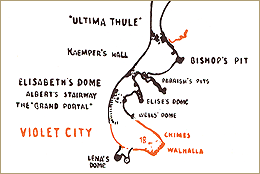 "ULTIMA THULE"
KAEMPER'S HALL
BISHOP'S PIT
PARRISH'S PITS
ELISABETH'S DOME
ALBERT'S STAIRWAY
THE "GRAND PORTAL"
ELISE'S DOME
WELLS' DOME
VIOLET CITY
18
CHIMES
WALHALLA
LENA'S
DOME